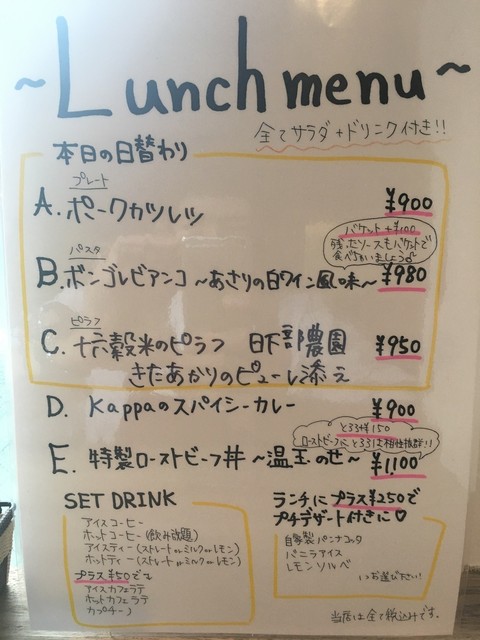 ~Lunch menu~
全てサラダ+ドリンク付き!!
本日の日替わり
プレート
A. ポークカツレツ ¥900
パスタ
バケット+¥100
残ったソースもバケットで
食べちゃいましょう♪
B. ボンゴレビアンコ ~あさりの白ワイン風味~ ¥980
ピラフ
C. 十六穀米のピラフ 日下部農園 ¥950
きたあかりのピューレ添え
D. Kappaのスパイシーカレー ¥900
とろろ+¥150
ローストビーフととろろは相性抜群!!
E. 特製ローストビーフ丼 ~温玉のせ~ ¥1,100
SET DRINK
アイスコーヒー
ホットコーヒー(飲み放題)
アイスティー(ストレート or ミルク or レモン)
ホットティー(ストレート or ミルク or レモン)
プラス¥50で↴
アイスカフェラテ
ホットカフェラテ
カプチーノ
ランチにプラス¥250で
プチデザート付きに♡
自家製パンナコッタ
バニラアイス
レモンソルベ
いずれかお選び下さい!
当店は全て税込みです。